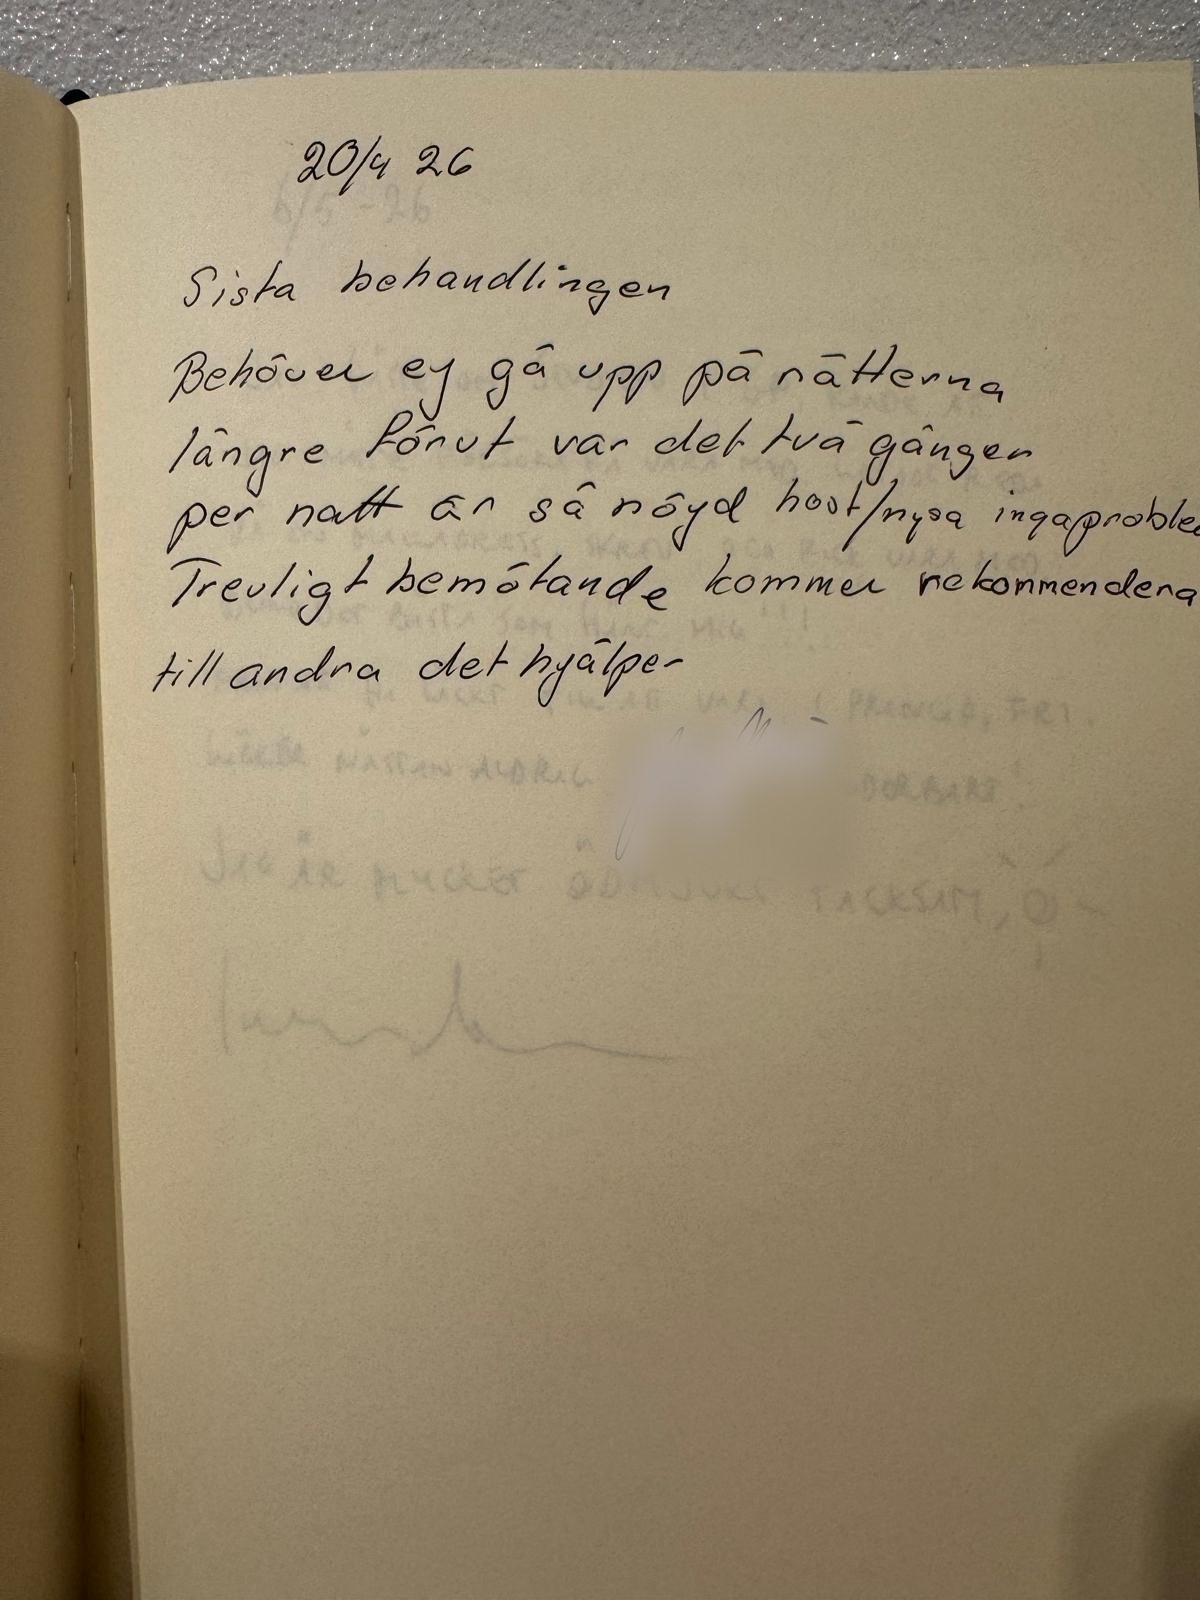 20/4 26
Sista behandlingen
Behöver ej gå upp på nätterna
längre förut var det två gånger
per natt är så nöjd host/nysa inga proble
Trevligt bemötande kommer rekommendera
till andra det hjälper